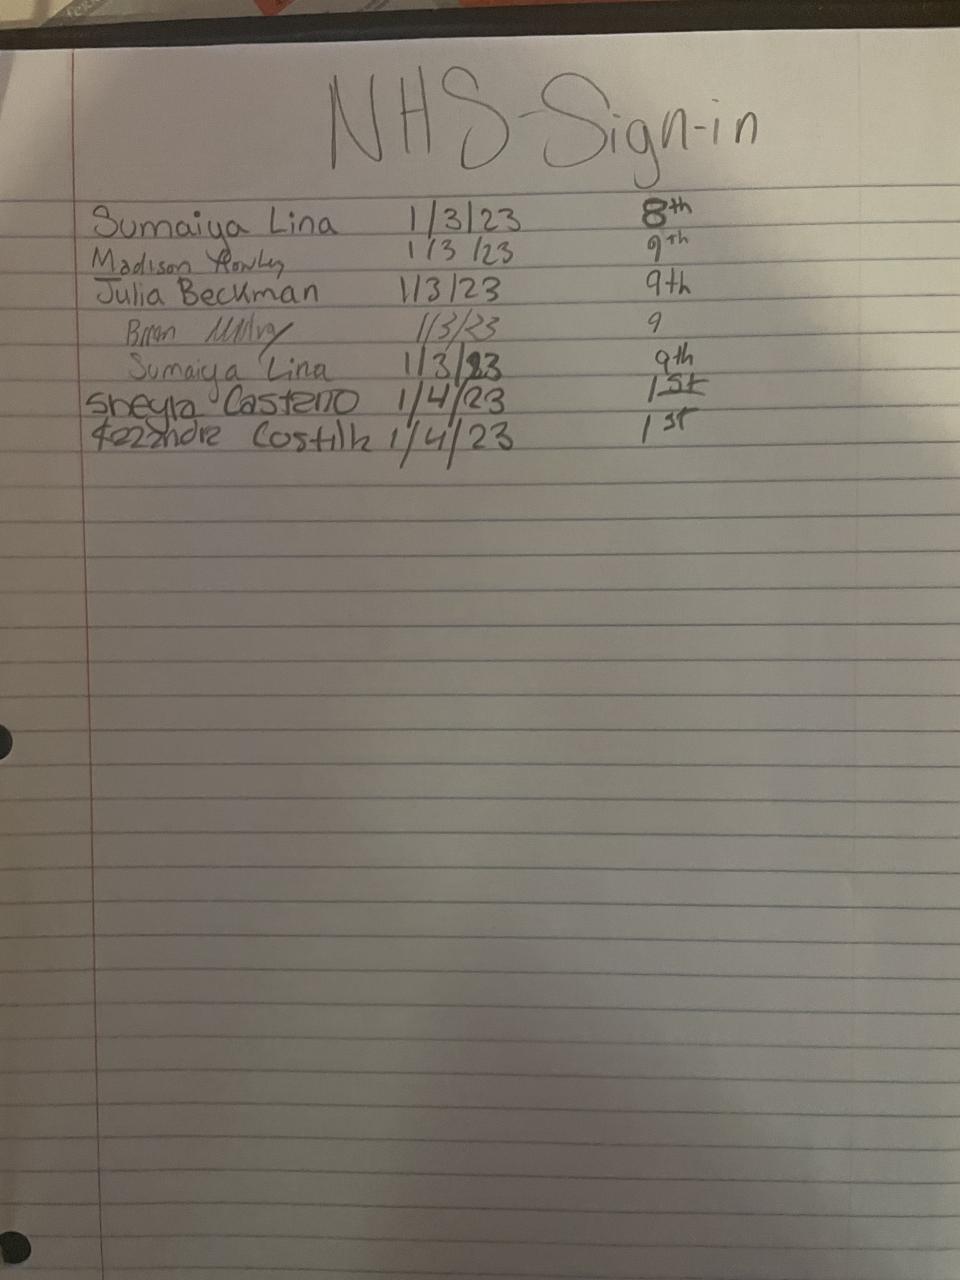 NHS-Sign-in
Sumaiya Lina 1/3/23 8th
Madison 1/3/23 9th
Julia Beckman 1/3/23 9th
1/3/23 9
Sumaiya Lina 1/3/23 9th
Sheyla 1/4/23 1st
1/4/23 1st